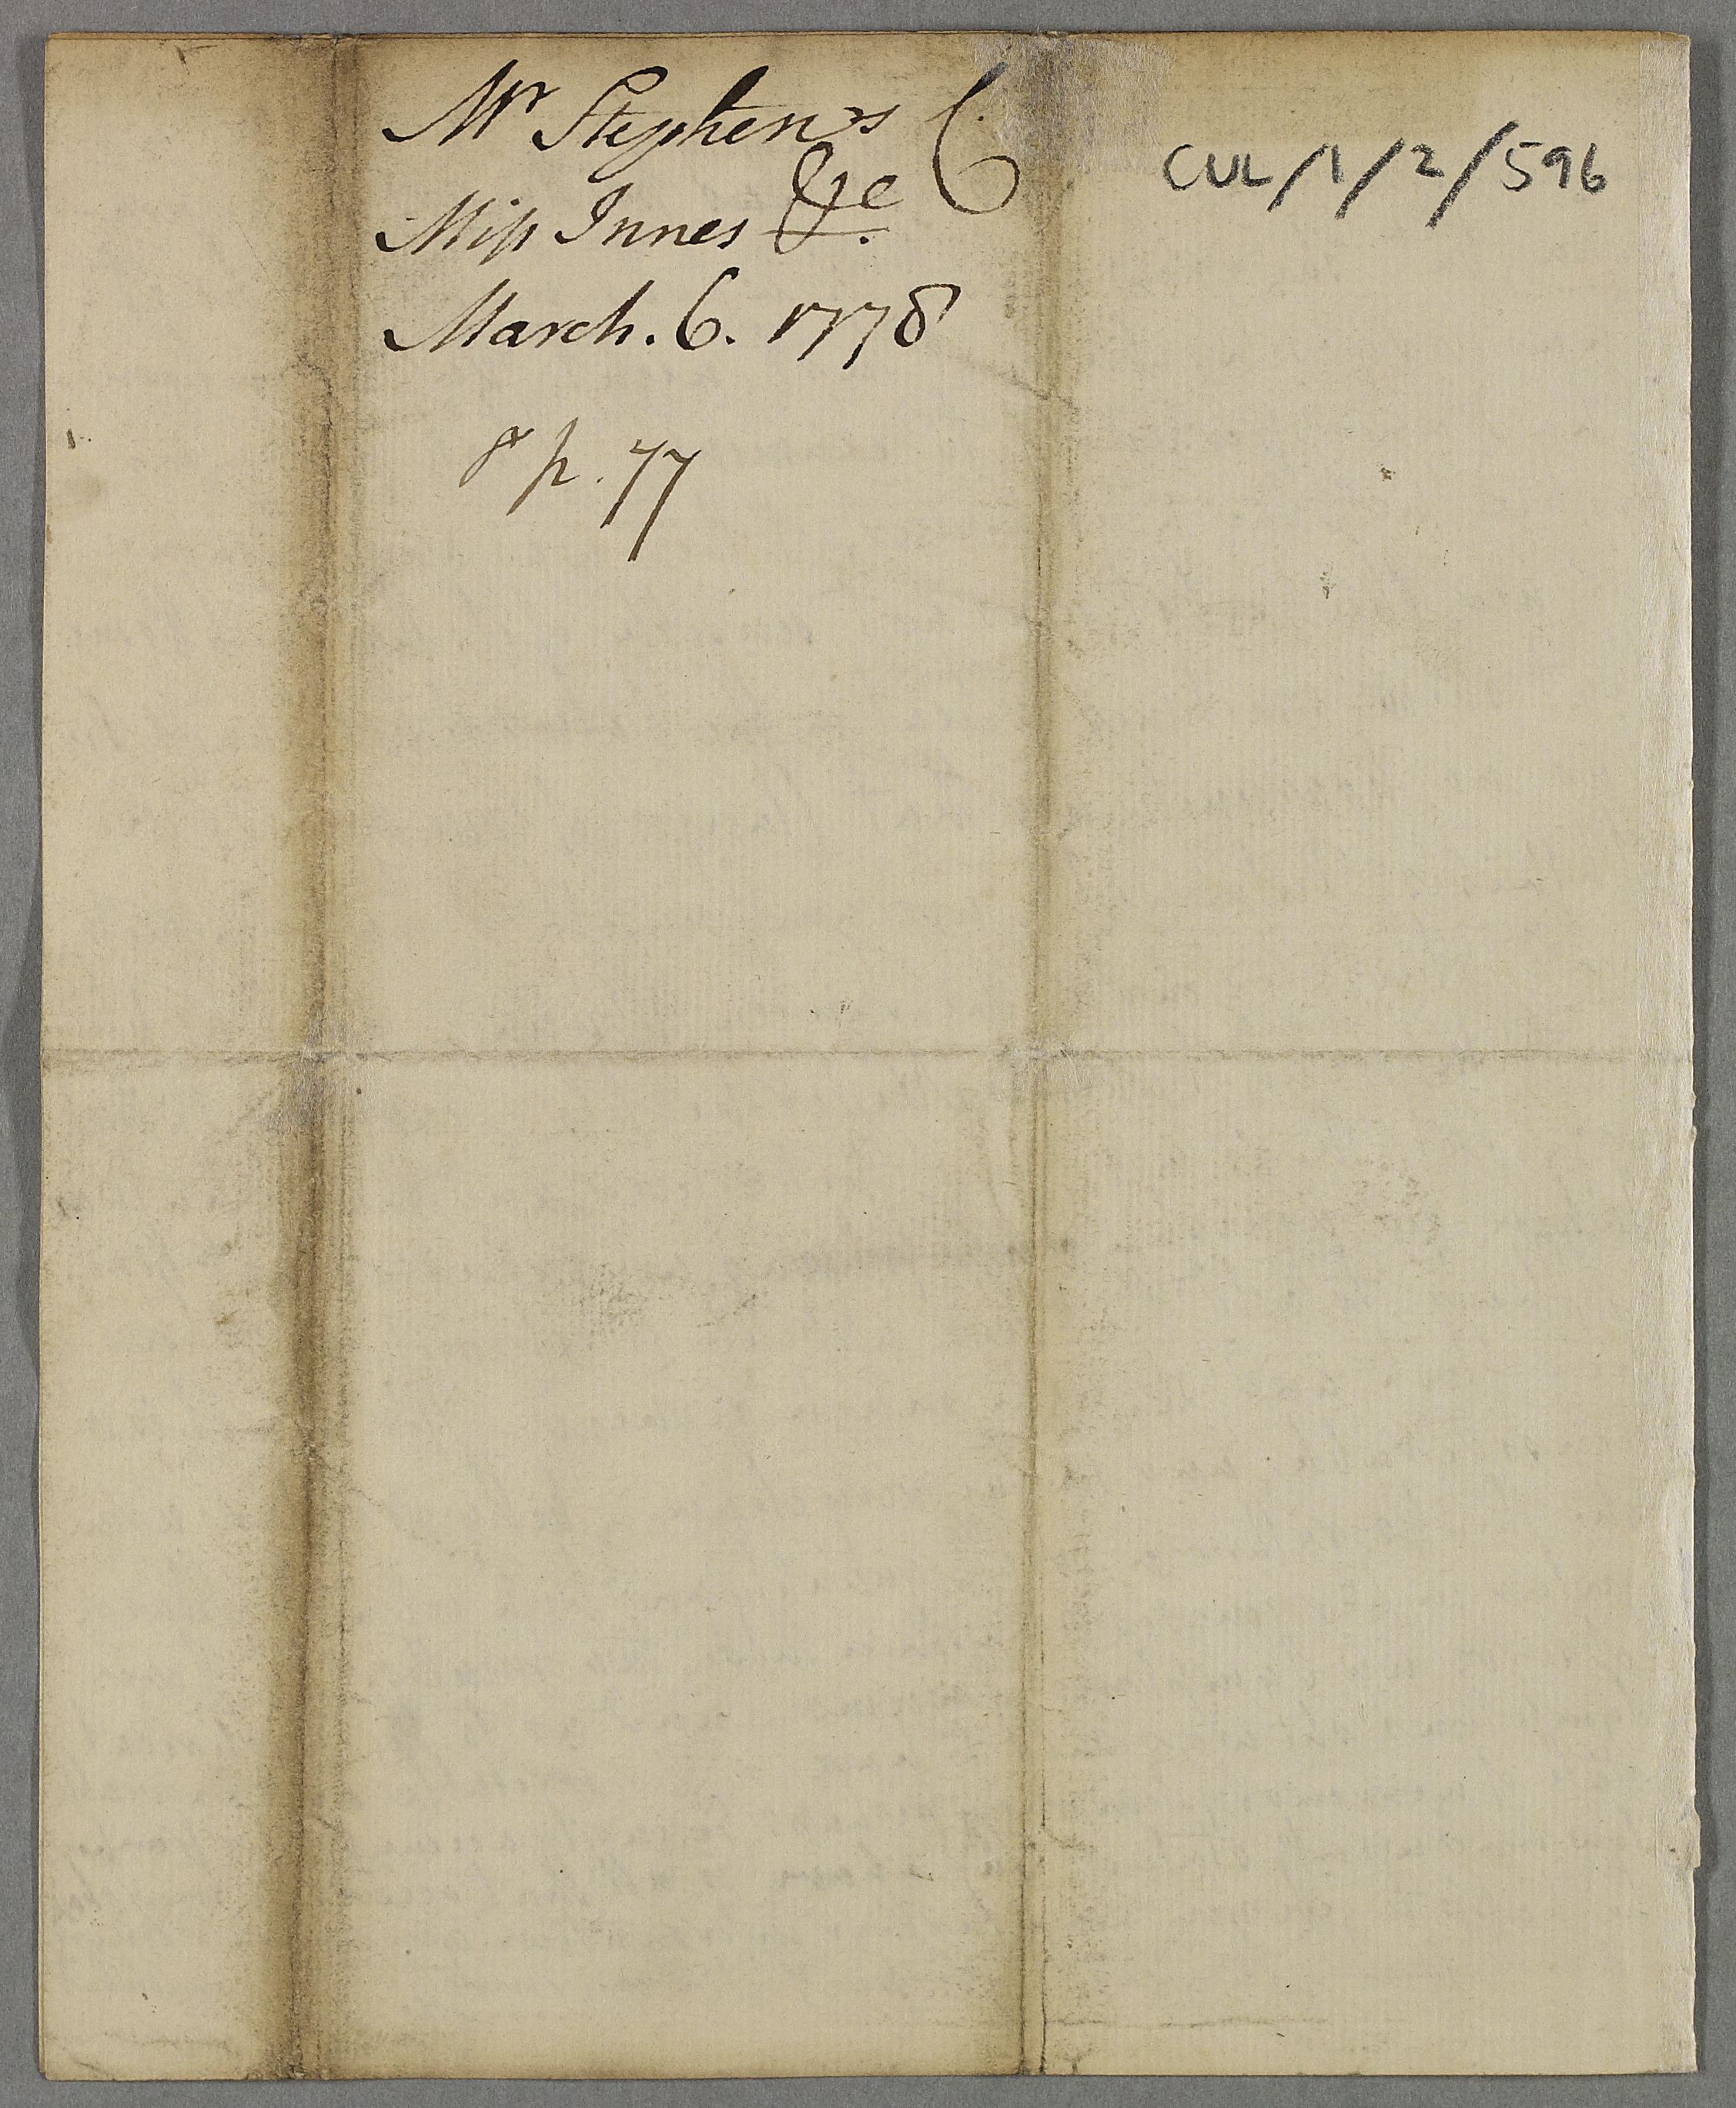 Mr Stephens 6
Miss Innes &c.
March. 6. 1778
p. 77
CUL/1/2/596